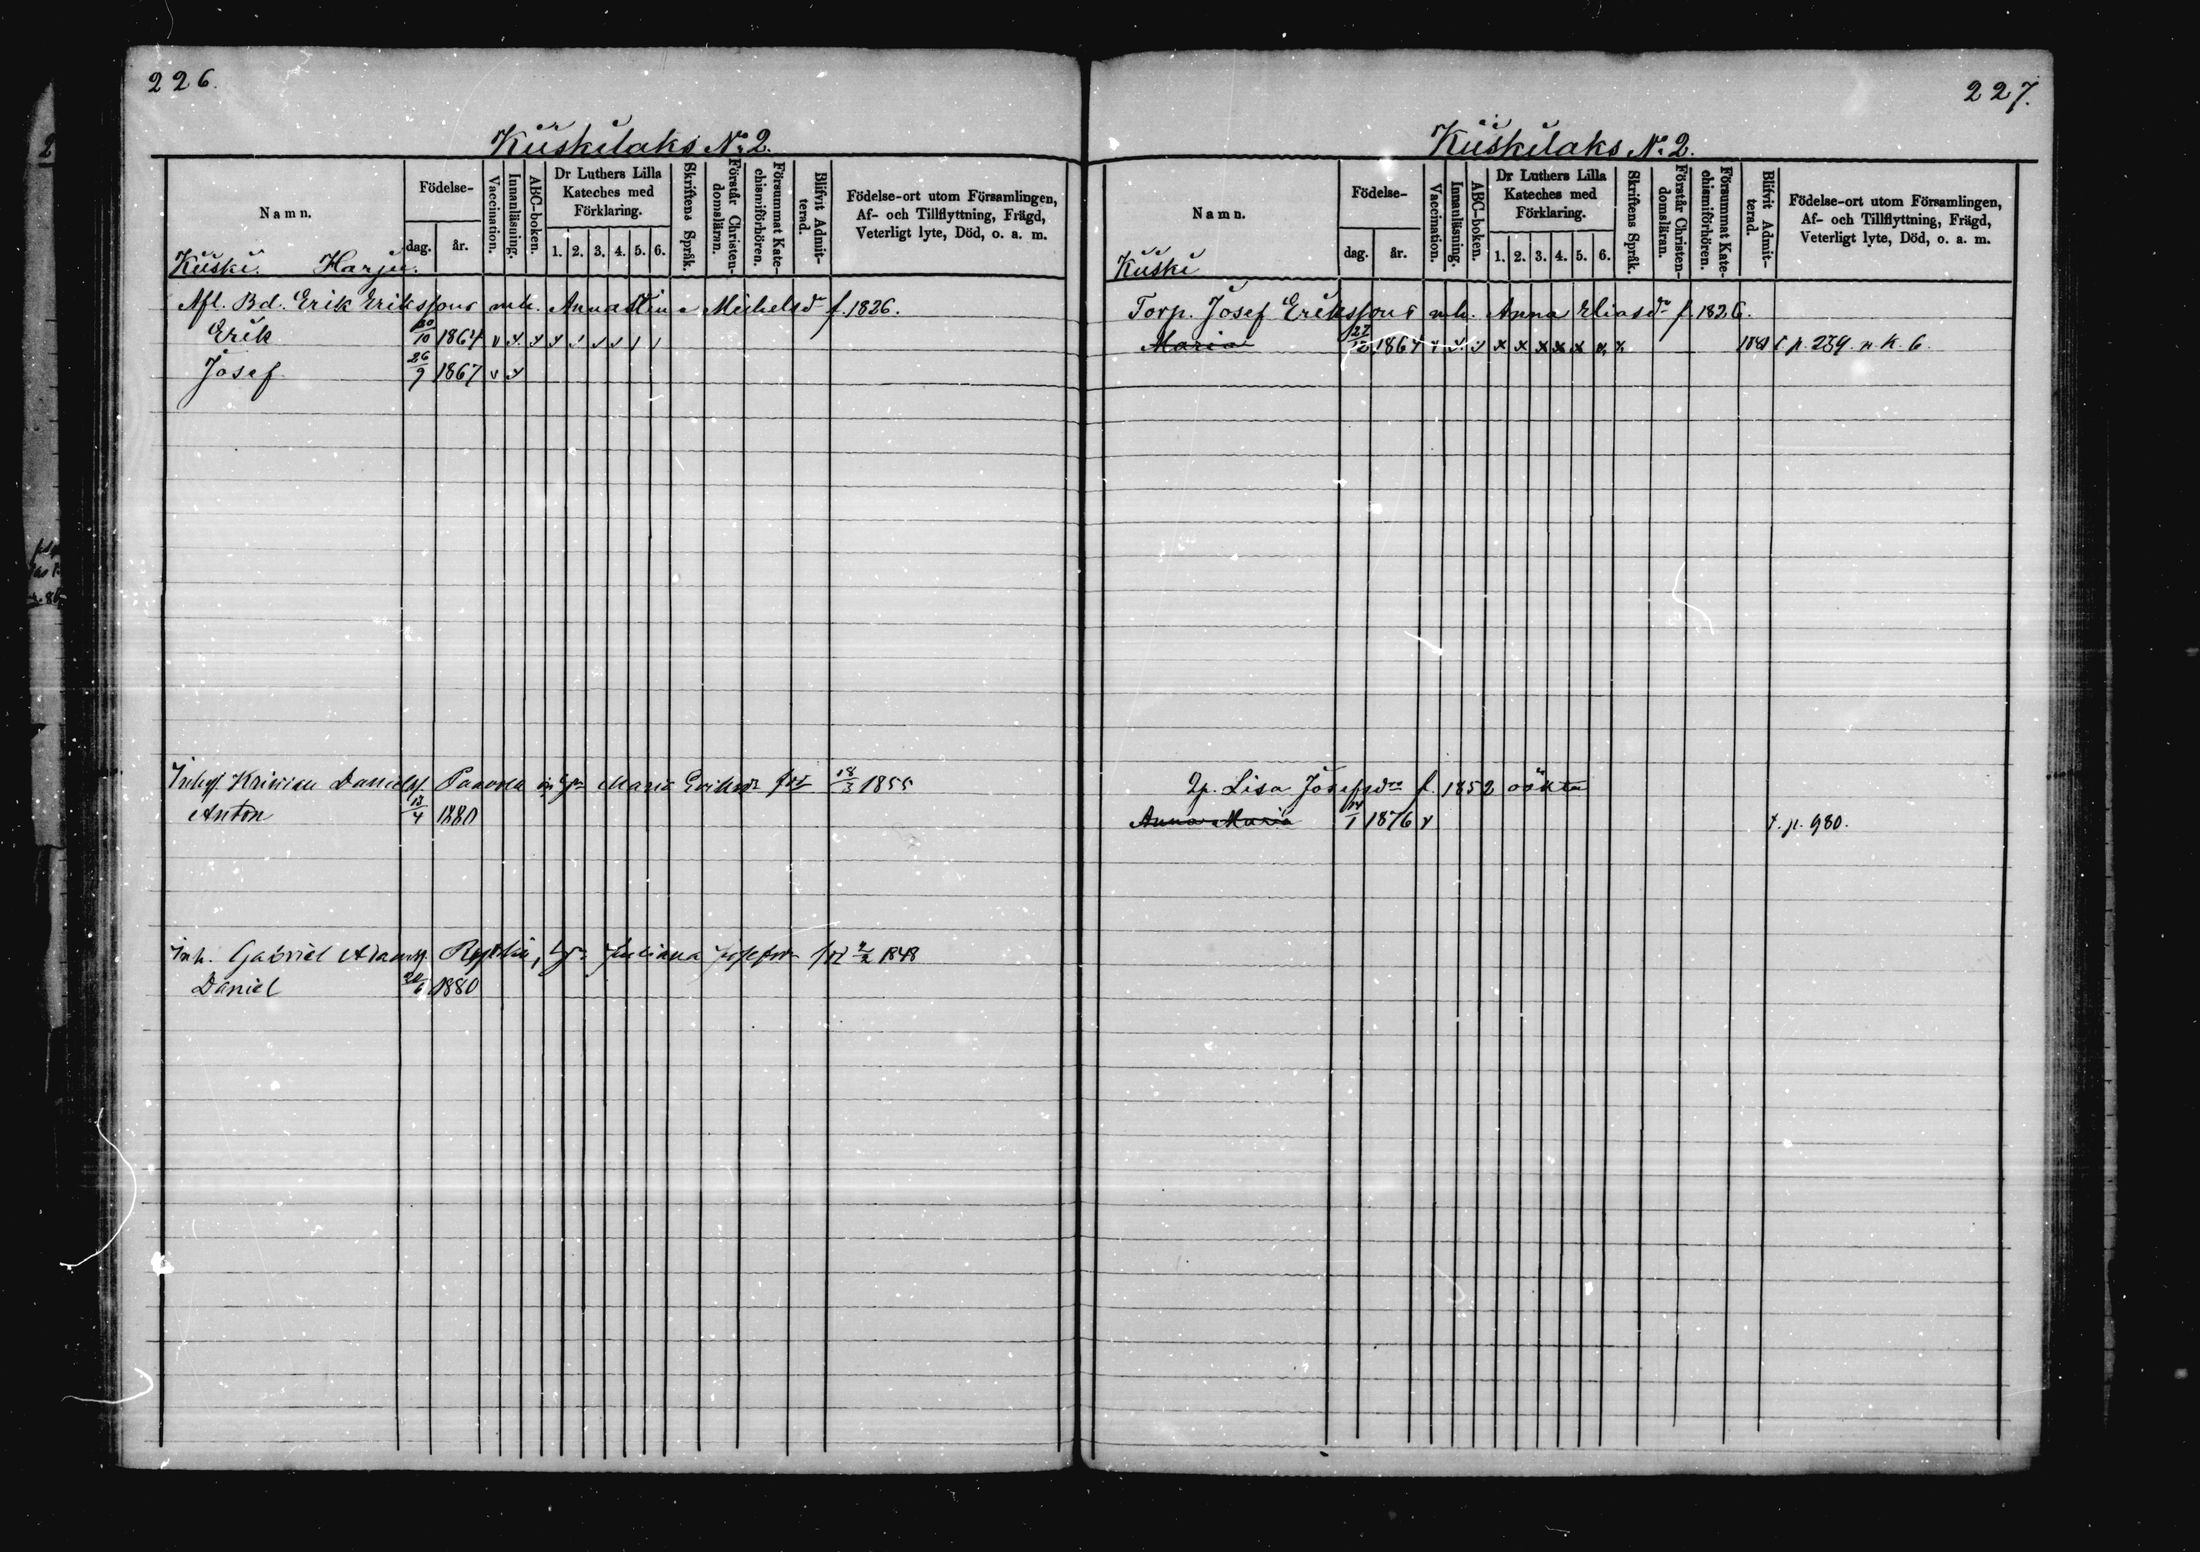 226.
Kiiskilaks No 2.
Namn.
Födelse-
dag. år.
Vaccination.
Innanläsning.
ABC-boken.
Dr Luthers Lilla Kateches med Förklaring.
1. 2. 3. 4. 5. 6.
Skriftens Språk.
Förstår Christendomsläran.
Försummat Katechismiförhören.
Blifvit Admitterad.
Födelse-ort utom Församlingen, Af- och Tillflyttning, Frägd, Veterligt lyte, Död, o. a. m.
Kiiski. Harju.
Afl. Bd. Erik Erikssons enk. Anna Stina Michelsdr f. 1826.
Erik 20/10 1864 v x x x v v v / /
Josef 26/9 1867 v x
Danielss. Paavola Maria Eriksdr född 18/3 1855
Anton 13/4 1880
Inh. Gabriel Adamss. Juliana Josefsdr född 1848
Daniel 1880
227.
Kiiskilaks No 2.
Namn.
Födelse-
dag. år.
Vaccination.
Innanläsning.
ABC-boken.
Dr Luthers Lilla Kateches med Förklaring.
1. 2. 3. 4. 5. 6.
Skriftens Språk.
Förstår Christendomsläran.
Försummat Katechismiförhören.
Blifvit Admitterad.
Födelse-ort utom Församlingen, Af- och Tillflyttning, Frägd, Veterligt lyte, Död, o. a. m.
Kiiski
Torp. Josef Erikssons enk. Anna Eliasdr f. 1826.
Maria 27/12 1864 x x x x x x x x x x p. 239. n. K. 6.
Lisa Josefsdr f. 1852 oäkta
Anna Maria 1876 v t. p. 980.